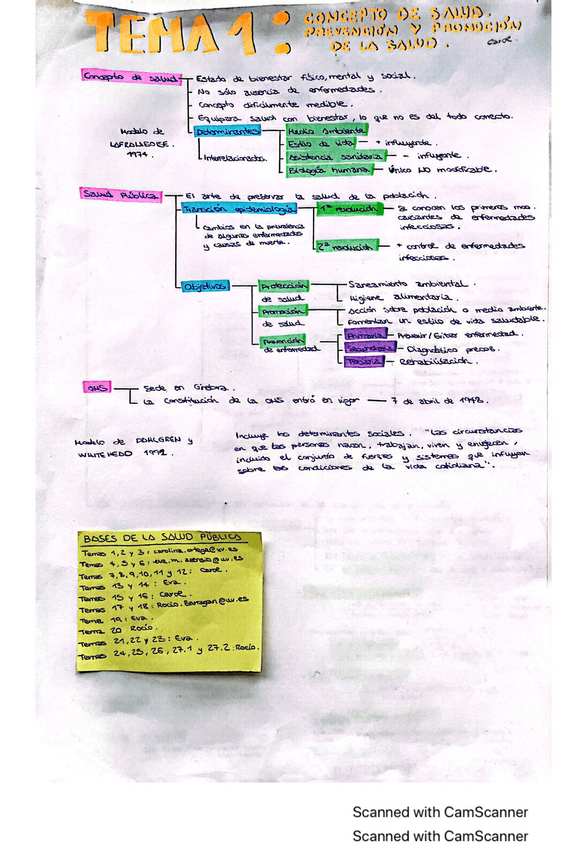 TEMA 1: CONCEPTO DE SALUD.
PREVENCIÓN Y PROMOCIÓN
DE LA SALUD.
Carol.
Concepto de salud — Estado de bienestar físico, mental y social.
No sólo ausencia de enfermedades.
Concepto difícilmente medible.
Equipara salud con bienestar, lo que no es del todo correcto.
Modelo de
LAFRAMBOISE.
1974.
Determinantes
Interrelacionados.
Medio Ambiente
Estilo de vida — + influyente.
Asistencia sanitaria — - influyente.
Biología humana — Único NO modificable.
Salud Pública — El arte de preservar la salud de la población.
Transición epidemiológica
Cambios en la prevalencia
de algunas enfermedades
y causas de muerte.
1ª revolución — Se conocen los primeros mo.
causantes de enfermedades
infecciosas.
2ª revolución — + control de enfermedades
infecciosas.
Objetivos
Protección
de salud
Saneamiento ambiental.
Higiene alimentaria.
Promoción
de salud
Acción sobre población o medio ambiente.
Fomentan un estilo de vida saludable.
Prevención
de enfermedad
Primaria — Prevenir/Evitar enfermedad.
Secundaria — Diagnóstico precoz.
Terciaria — Rehabilitación.
OMS — Sede en Ginebra.
La Constitución de la OMS entró en vigor — 7 de abril de 1948.
Modelo de DAHLGREN y
WHITEHEAD 1991.
Incluye los determinantes sociales. "Las circunstancias
en que las personas nacen, trabajan, viven y envejecen,
incluido el conjunto de fuerzas y sistemas que influyen
sobre las condiciones de la vida cotidiana".
BASES DE LA SALUD PÚBLICA
Temas 1, 2 y 3: carolina.ortega@uv.es
Temas 4, 5 y 6: eva.m.asensio@uv.es
Temas 7, 8, 9, 10, 11 y 12: Carol.
Temas 13 y 14: Eva.
Temas 15 y 16: Carol.
Temas 17 y 18: Rocio.Barragan@uv.es
Tema 19: Eva.
Tema 20 Rocío.
Temas 21, 22 y 23: Eva.
Temas 24, 25, 26, 27.1 y 27.2: Rocío.
Scanned with CamScanner
Scanned with CamScanner